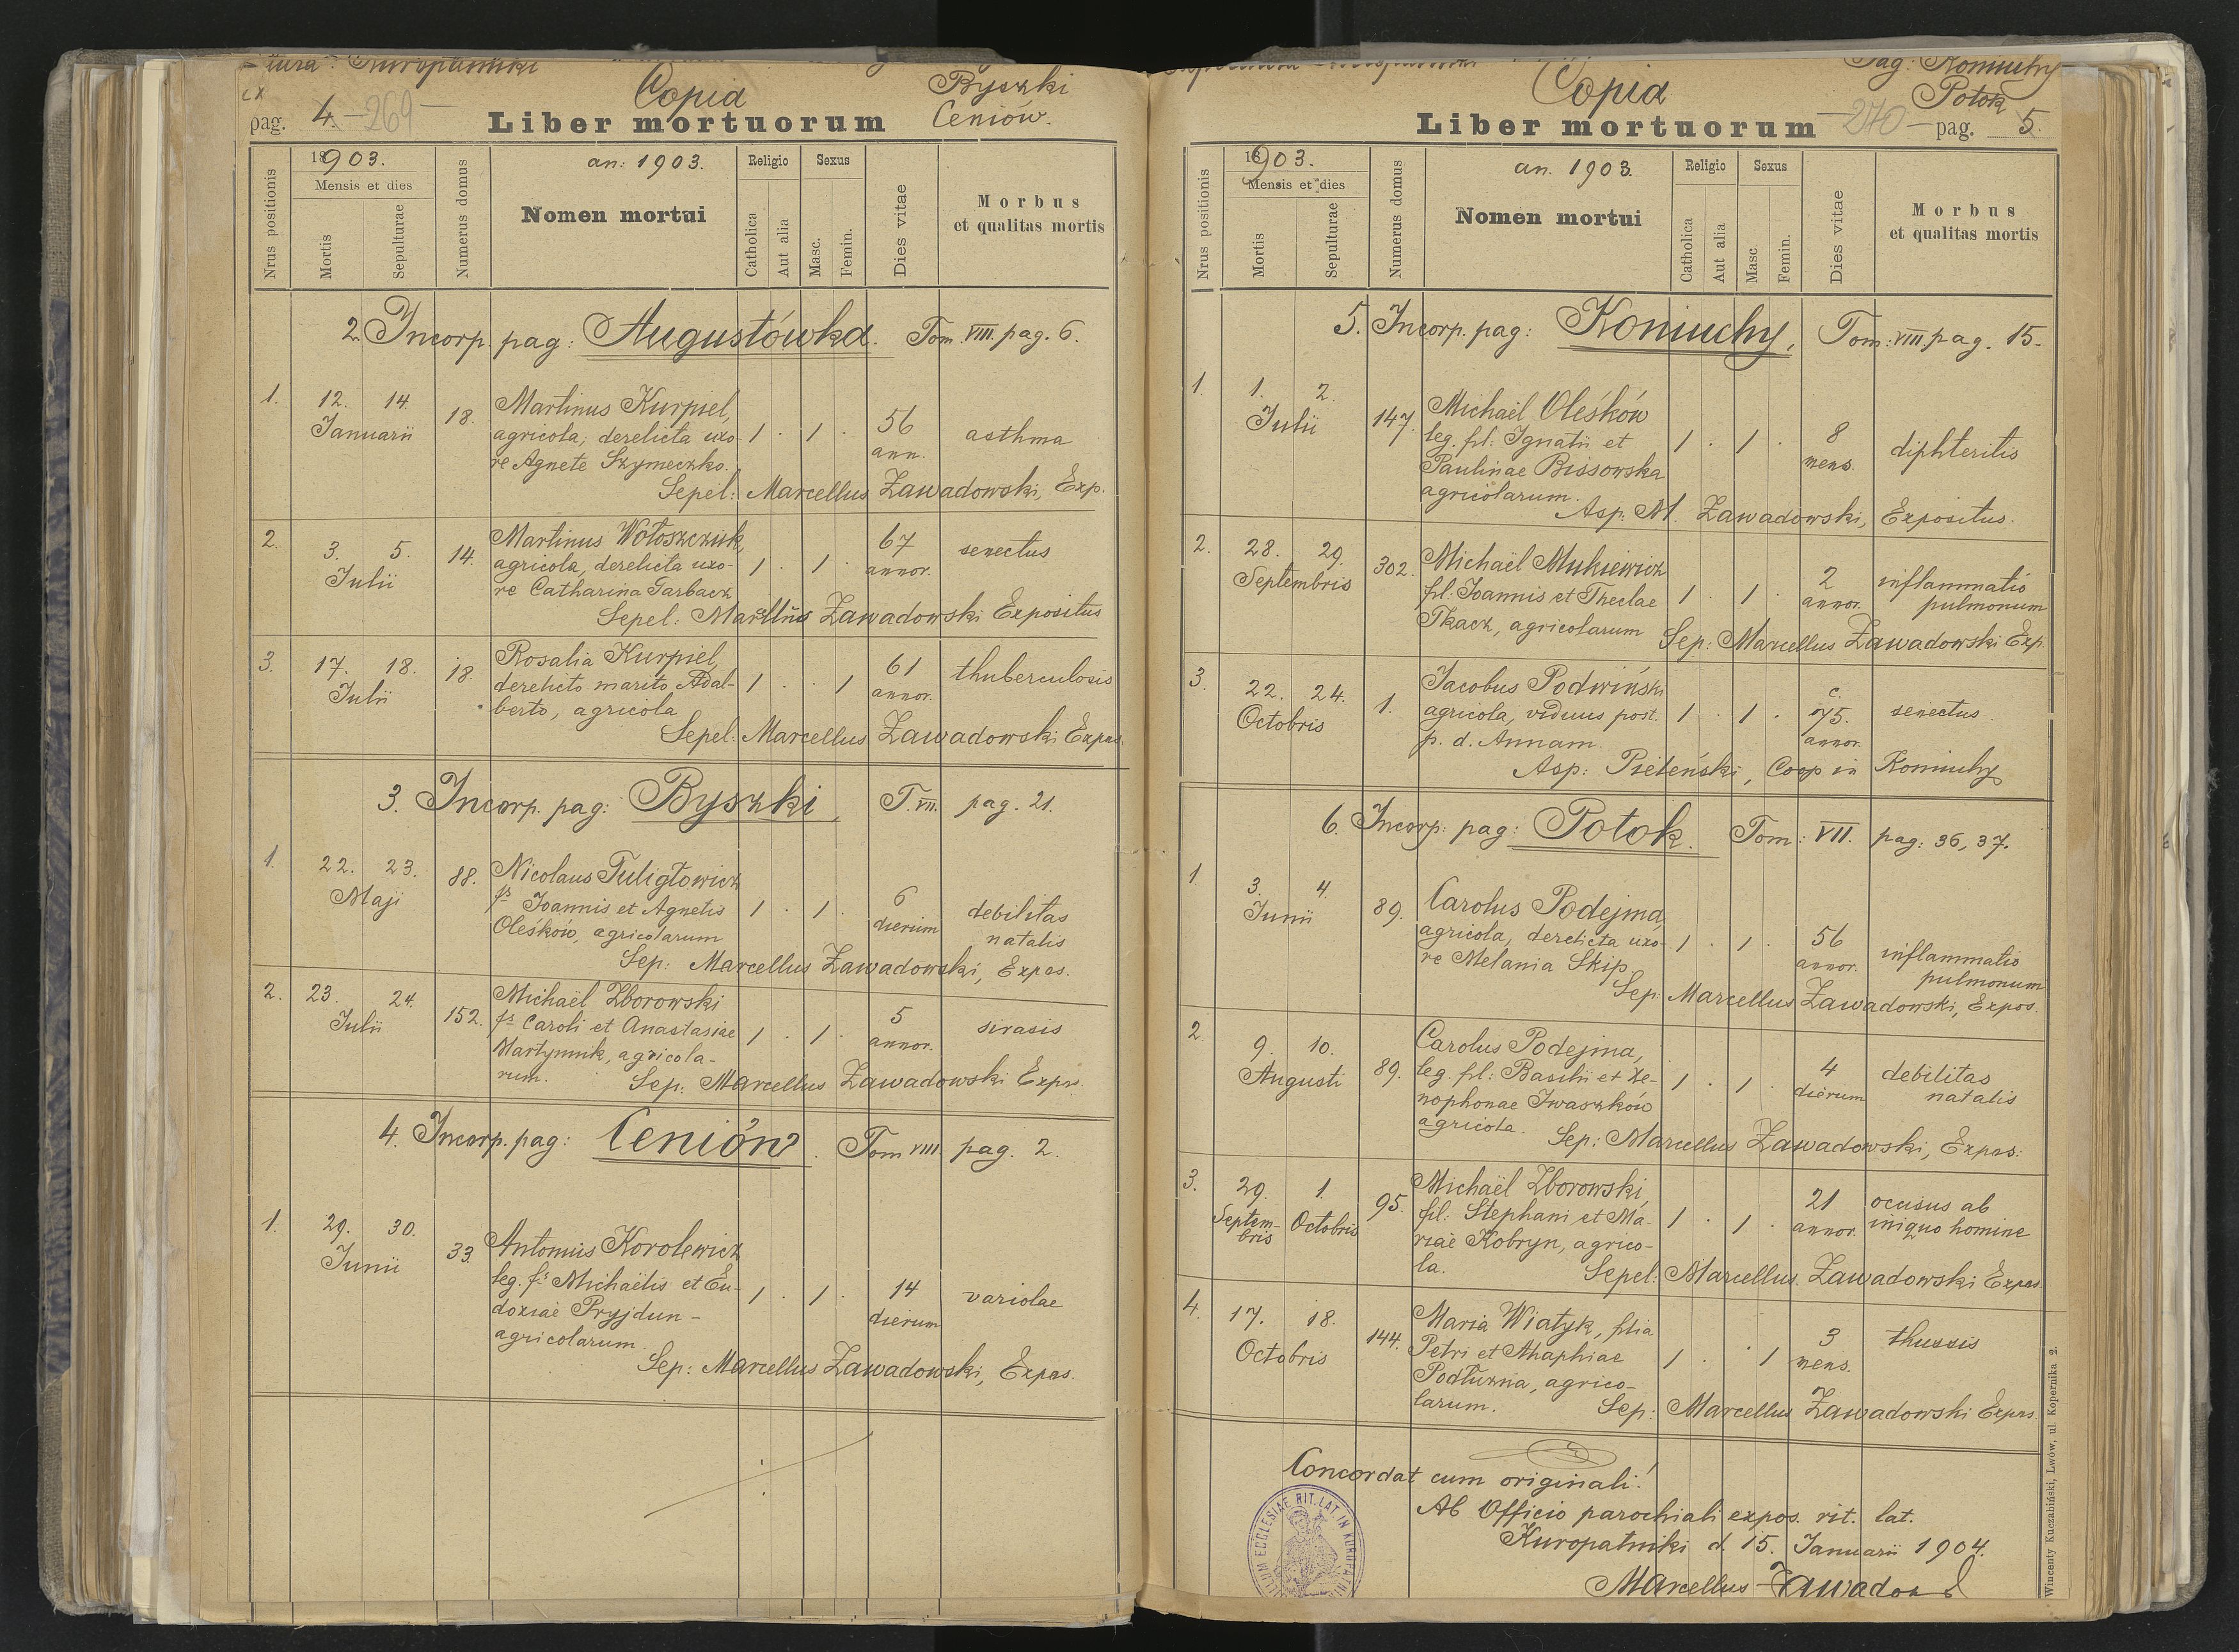 Copia
Byszki
pag. 4. – 269 –
Liber mortuorum
Ceniów.
Nrus positionis
1903.
Mensis et dies
Mortis
Sepulturae
Numerus domus
an: 1903.
Nomen mortui
Religio
Catholica
Aut alia
Sexus
Masc.
Femin.
Dies vitae
Morbus
et qualitas mortis
2. Incorp. pag: Augustówka. Tom. VIII. pag. 6.
1. 12. 14. 18. Martinus Kurpiel,
Januarii agricola, derelicta uxo- 1 · 1 · 56 asthma
re Agnete Szymeczko. ann.
Sepel: Marcellus Zawadowski, Exp.
2. 3. 5. 14. Martinus Wołoszczuk, 67 senectus
Julii agricola, derelicta uxo- 1 · 1 · annor.
re Catharina Garbacz
Sepel: Marcellus Zawadowski Expositus
3. 17. 18. 18. Rosalia Kurpiel, 61 thuberculosis
Julii derelicto marito Adal- 1 · · 1 annor.
berto, agricola
Sepel: Marcellus Zawadowski Expos.
3. Incorp. pag: Byszki, T. VII. pag. 21.
1. 22. 23. 88. Nicolaus Tuligłowicz
Maji fs Joannis et Agnetis 1 · 1 · 6 debilitas
Oleśków, agricolarum dierum natalis
Sep: Marcellus Zawadowski, Expos.
2. 23. 24. 152. Michaël Zborowski
Julii fs Caroli et Anastasiae 1 · 1 · 5 sirasis
Martynnik, agricola- annor.
rum. Sep: Marcellus Zawadowski Expos.
4. Incorp. pag: Ceniów. Tom VIII. pag. 2.
1. 29. 30. 33. Antonius Korolewicz
Junii leg. fs Michaëlis et Eu- 1 · 1 · 14 variolae
doxiae Pryjdun – dierum
agricolarum.
Sep: Marcellus Zawadowski, Expos.
Copia
Pag: Koniuchy
Potok
Liber mortuorum – 270 – pag. 5.
Nrus positionis
1903.
Mensis et dies
Mortis
Sepulturae
Numerus domus
an. 1903.
Nomen mortui
Religio
Catholica
Aut alia
Sexus
Masc
Femin.
Dies vitae
Morbus
et qualitas mortis
5. Incorp. pag: Koniuchy, Tom: VIII. pag. 15.
1. 1. 2. 147. Michaël Oleśków
Julii leg. fil: Ignatii et 1 · 1 · 8 diphteritis
Paulinae Bissowska mens.
agricolarum.
Asp: M. Zawadowski, Expositus.
2. 28. 29. 302. Michaël Mukiewicz
Septembris fil: Joannis et Theclae 1 · 1 · 2 annor. inflammatio pulmonum
Tkacz, agricolarum
Sep: Marcellus Zawadowski Exp.
3. 22. 24. 1. Jacobus Podwiński c.
Octobris agricola, viduus post. 1 · 1 · 75. senectus
p. d. Annam. annor.
Asp: Pieleński, Coop in Koniuchy
6. Incorp: pag: Potok. Tom: VII. pag: 36, 37.
1. 3. 4. 89. Carolus Podejma,
Junii agricola, derelicta uxo- 1 · 1 · 56 inflammatio
re Melania Skip. annor. pulmonum
Sep: Marcellus Zawadowski, Expos.
2. 9. 10. 89. Carolus Podejma,
Augusti leg. fil: Basilii et Xe- 1 · 1 · 4 debilitas
nophonae Iwaszków dierum natalis
agricola. Sep: Marcellus Zawadowski, Expos:
3. 29. 1. 95. Michaël Zborowski, 21 occisus ab
Septem- Octobris fil: Stephani et Ma- 1 · 1 · annor. iniquo homine
bris riae Kobryn, agrico-
la. Sepel: Marcellus Zawadowski Expos.
4. 17. 18. 144. Maria Wiatyk, filia 3 thussis
Octobris Petri et Ahaphiae 1 · · 1 mens.
Podłużna, agrico-
larum. Sep: Marcellus Zawadowski Expos.
Concordat cum originali!
Ab Officio parochiali expos. rit. lat.
Kuropatniki d. 15. Januarii 1904.
Marcellus Zawadow
ECCLESIAE RIT. LAT. IN KUROPATNI
Wincenty Kuczabiński, Lwów, ul. Kopernika 2.